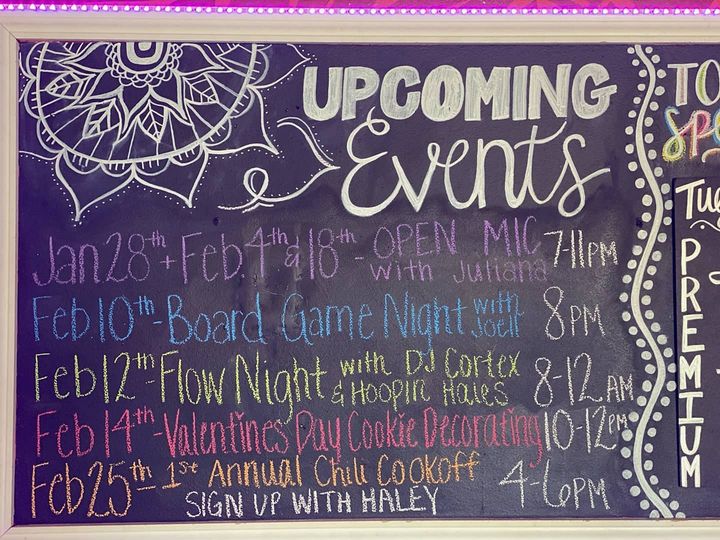 UPCOMING
Events
Jan 28th + Feb. 4th & 18th - OPEN MIC with Juliana 7-11PM
Feb. 10th - Board Game Night with Joell 8PM
Feb 12th - Flow Night with DJ Cortex & Hoopin Hales 8-12 AM
Feb 14th - Valentines Day Cookie Decorating 10-12PM
Feb 25th - 1st Annual Chili Cookoff 4-6PM
SIGN UP WITH HALEY
PREMIUM